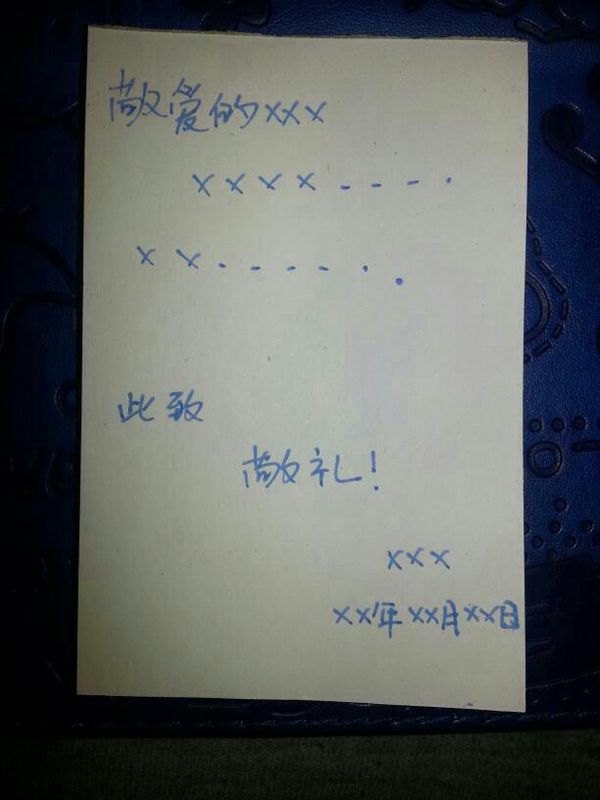 敬爱的xxx
xxxx......
xx.......
此致
敬礼!
xxx
xx年xx月xx日